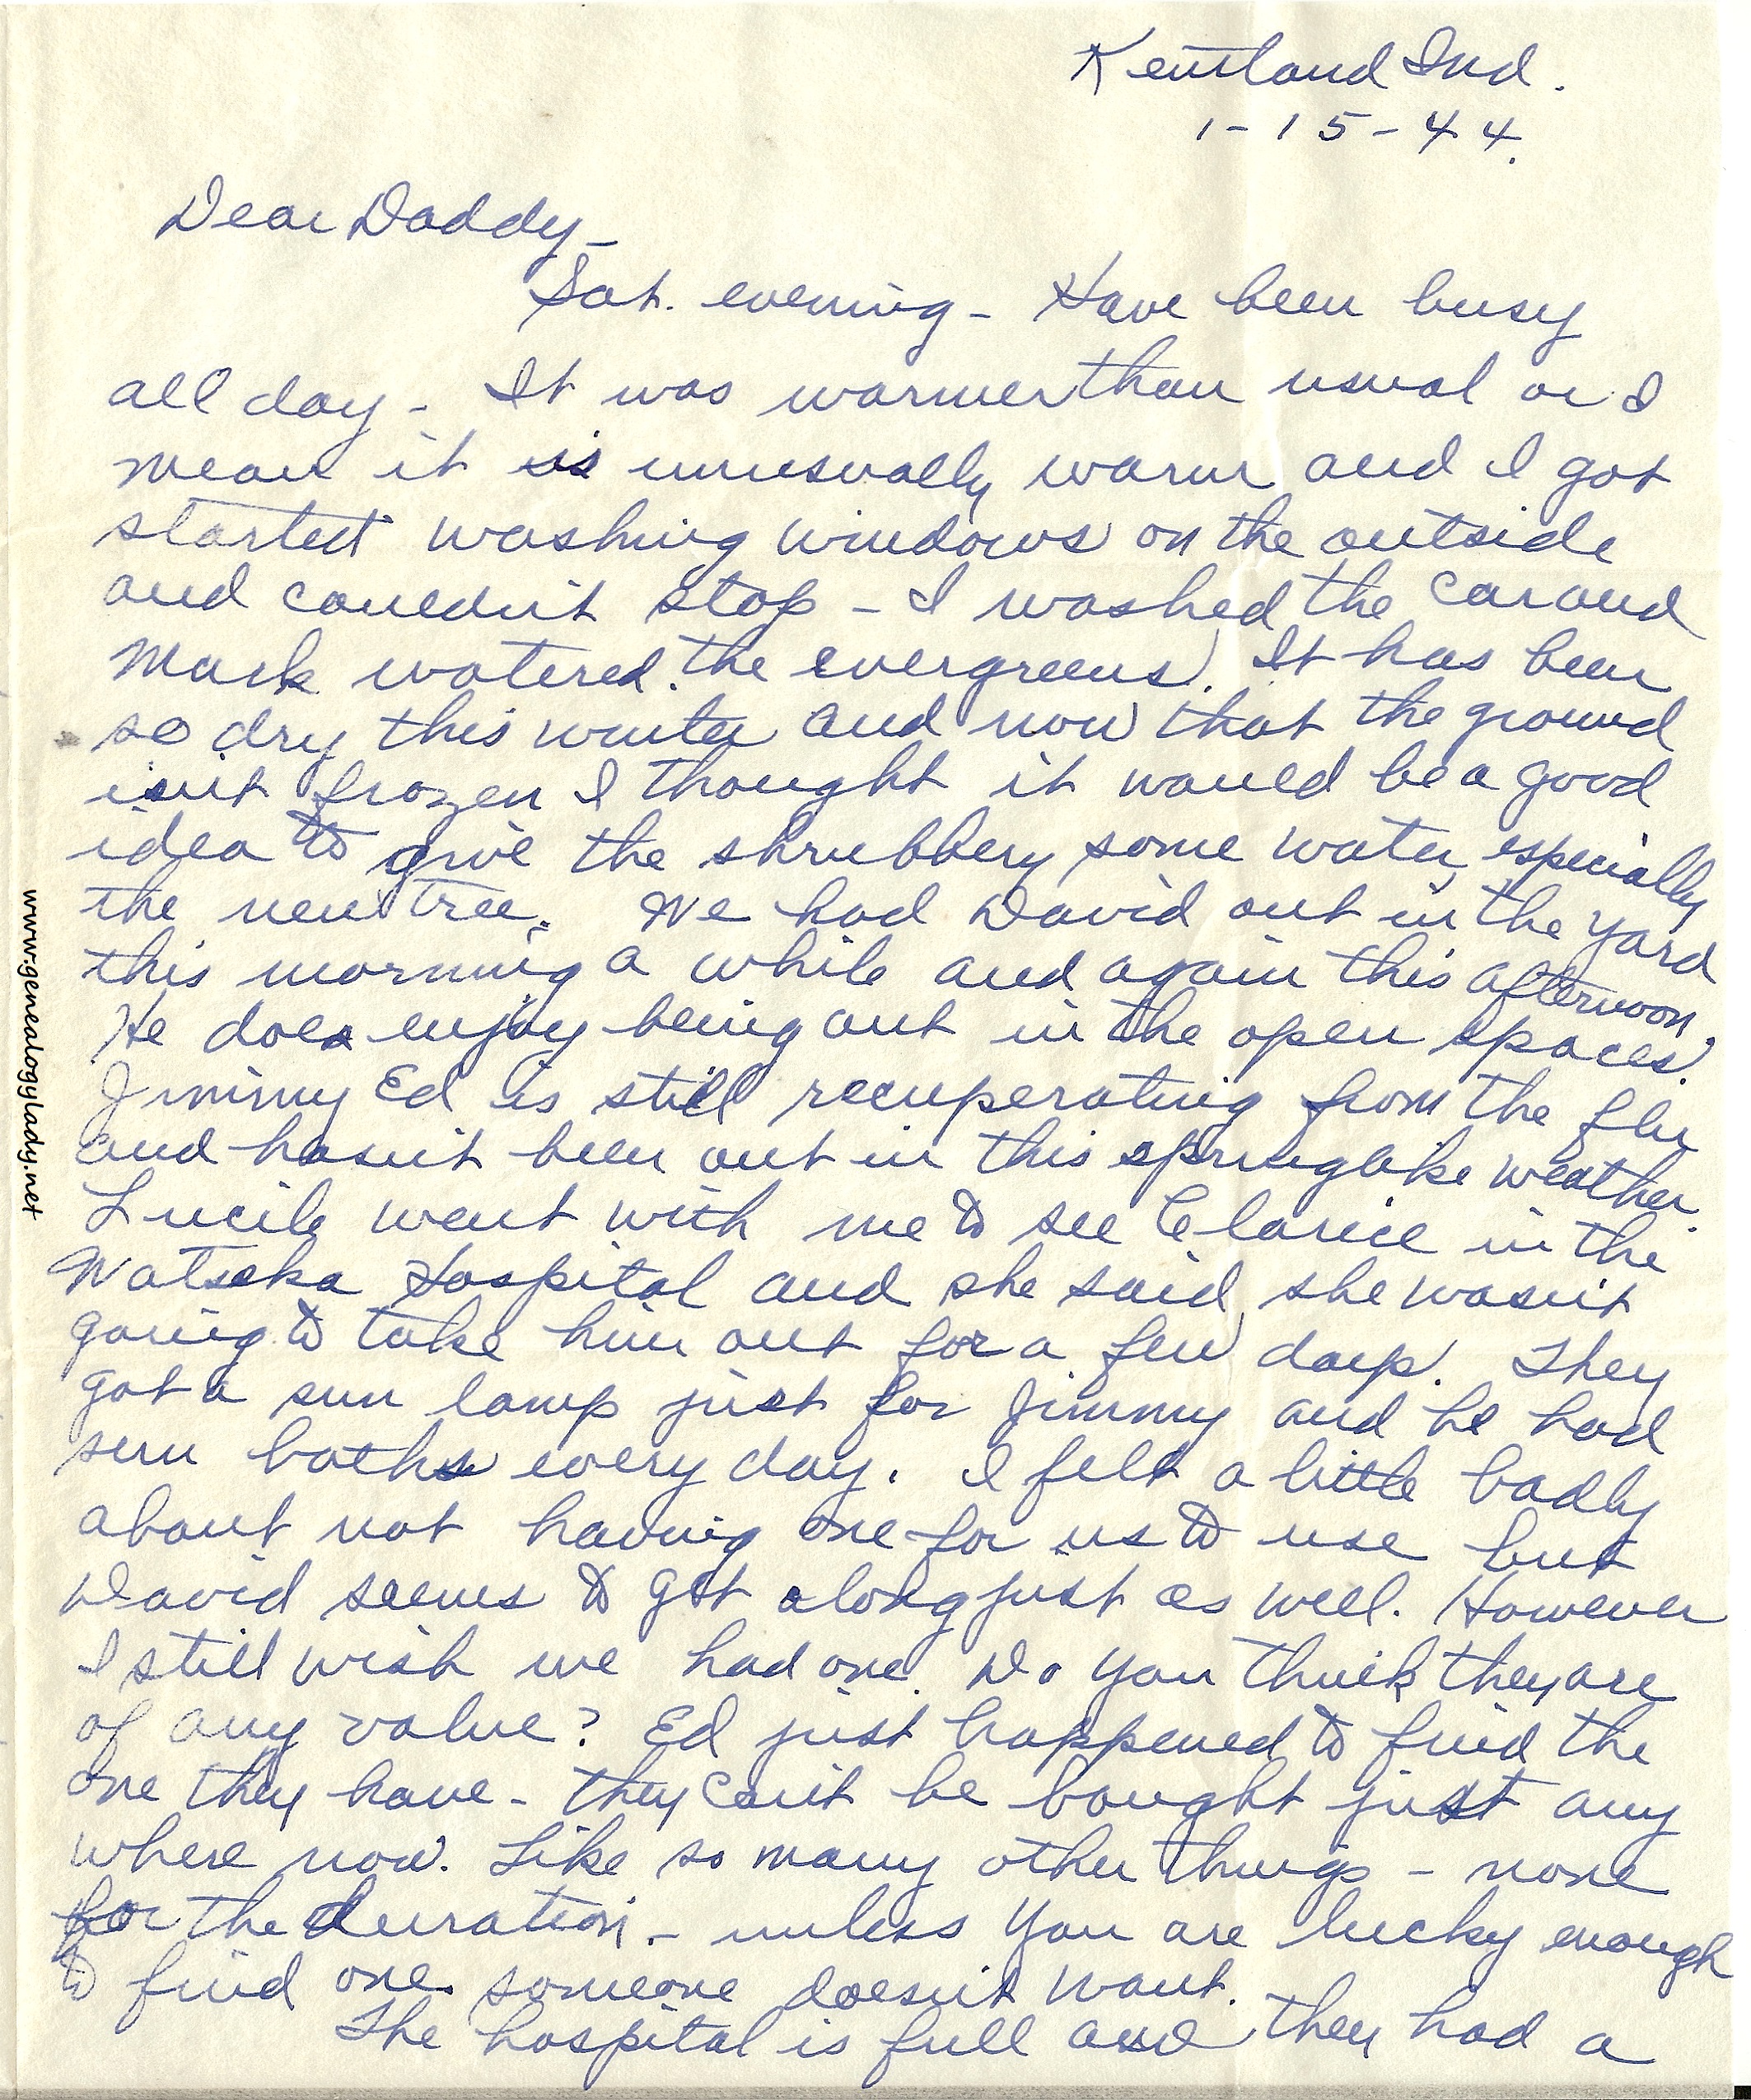 Kentland Ind.
1-15-44.
Dear Daddy-
Sat. evening - Have been busy
all day - It was warmer than usual or I
mean it is unusually warm and I got
started washing windows on the outside
and couldn't stop - I washed the car and
Mark watered the evergreens. It has been
so dry this winter and now that the ground
isn't frozen I thought it would be a good
idea to give the shrubbery some water, especially
the new tree. We had David out in the yard
this morning a while and again this afternoon.
He does enjoy being out in the open spaces.
Jimmy Ed is still recuperating from the flu
and hasn't been out in this springlike weather.
Lucile went with me to see Clarice in the
Watseka Hospital and she said she wasn't
going to take him out for a few days. They
got a sun lamp just for Jimmy and he had
sun baths every day. I felt a little badly
about not having one for us to use but
David seems to get along just as well. However
I still wish we had one. Do you think they are
of any value? Ed just happened to find the
one they have - they can't be bought just any
where now. Like so many other things - none
for the duration - unless you are lucky enough
to find one someone doesn't want.
The hospital is full and they had a
www.genealogylady.net